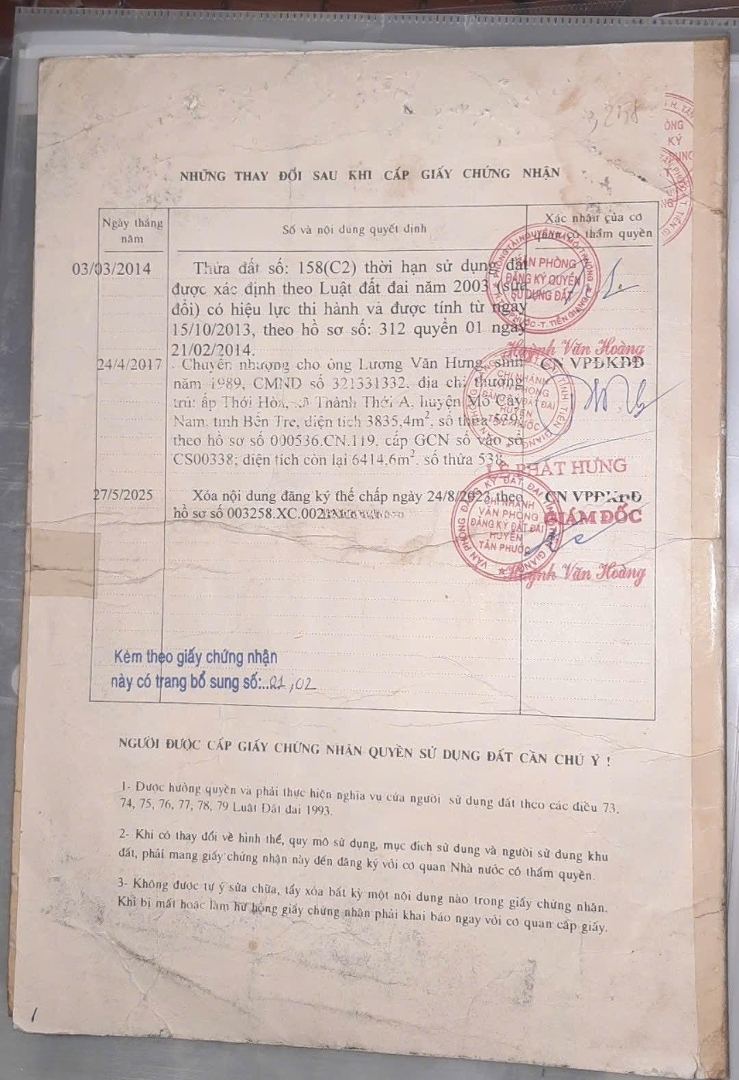 3, 258
NHỮNG THAY ĐỔI SAU KHI CẤP GIẤY CHỨNG NHẬN
Ngày tháng năm
Số và nội dung quyết định
Xác nhận của cơ quan có thẩm quyền
03/03/2014
Thửa đất số: 158(C2) thời hạn sử dụng đất
được xác định theo Luật đất đai năm 2003 (sửa
đổi) có hiệu lực thi hành và được tính từ ngày
15/10/2013, theo hồ sơ số: 312 quyển 01 ngày
21/02/2014.
VĂN PHÒNG
ĐĂNG KÝ QUYỀN
SỬ DỤNG ĐẤT
Huỳnh Văn Hoàng
24/4/2017
- Chuyển nhượng cho ông Lương Văn Hưng, sinh
năm 1989, CMND số 321331332, địa chỉ thường
trú: ấp Thới Hòa, xã Thành Thới A, huyện Mỏ Cày
Nam, tỉnh Bến Tre, diện tích 3835,4m², số thửa
theo hồ sơ số 000536.CN.119, cấp GCN số vào sổ
CS00338; diện tích còn lại 6414,6m², số thửa 538.
CN VPĐKĐĐ
CHI NHÁNH
VĂN PHÒNG
ĐĂNG KÝ ĐẤT ĐAI
HUYỆN
TÂN PHƯỚC
LÊ PHÁT HƯNG
27/5/2025
Xóa nội dung đăng ký thế chấp ngày 24/8/2023 theo
hồ sơ số 003258.XC.002
CN VPĐKĐĐ
GIÁM ĐỐC
VĂN PHÒNG ĐĂNG KÝ ĐẤT ĐAI TỈNH TIỀN GIANG
CHI NHÁNH
VĂN PHÒNG
ĐĂNG KÝ ĐẤT ĐAI
HUYỆN
TÂN PHƯỚC
Huỳnh Văn Hoàng
Kèm theo giấy chứng nhận
này có trang bổ sung số:...01,02
NGƯỜI ĐƯỢC CẤP GIẤY CHỨNG NHẬN QUYỀN SỬ DỤNG ĐẤT CẦN CHÚ Ý !
1- Được hưởng quyền và phải thực hiện nghĩa vụ của người sử dụng đất theo các điều 73,
74, 75, 76, 77, 78, 79 Luật Đất đai 1993.
2- Khi có thay đổi về hình thể, quy mô sử dụng, mục đích sử dụng và người sử dụng khu
đất, phải mang giấy chứng nhận này đến đăng ký với cơ quan Nhà nước có thẩm quyền.
3- Không được tự ý sửa chữa, tẩy xóa bất kỳ một nội dung nào trong giấy chứng nhận.
Khi bị mất hoặc làm hư hỏng giấy chứng nhận phải khai báo ngay với cơ quan cấp giấy.